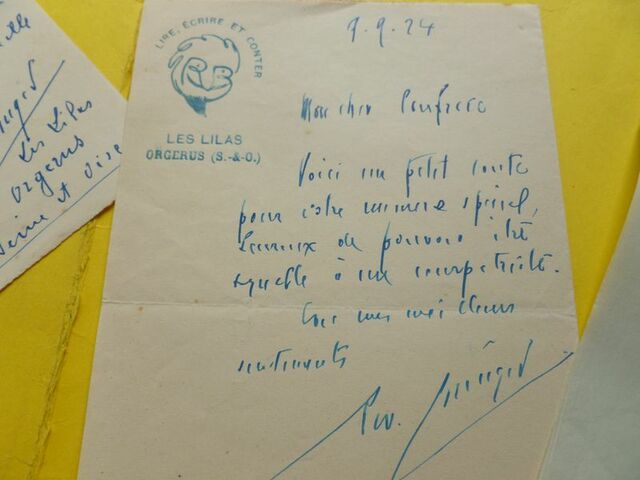 LIRE, ÉCRIRE ET CONTER
RB
LES LILAS
ORGERUS (S.-&-O.)
9.9.24
Mon cher Confrère
Voici un petit conte
pour votre numéro spécial,
heureux de pouvoir être
agréable à un compatriote.
Tous mes meilleurs
sentiments
Les Lilas
Orgerus
Seine et Oise